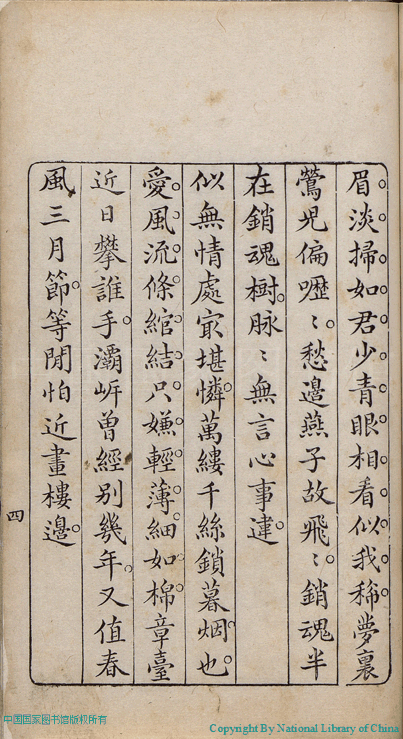 眉淡掃如君少青眼相看似我稀夢裏
鶯兒偏嚦〻愁邊燕子故飛〻銷魂半
在銷魂樹脉〻無言心事違
似無情處㝡堪憐萬縷千絲鎖暮烟也
愛風流條綰結只嫌輕薄細如棉章臺
近日攀誰手灞㟁曾經別幾年又值春
風三月節等閒怕近畫樓邊
四
中国国家图书馆版权所有
Copyright By National Library of China